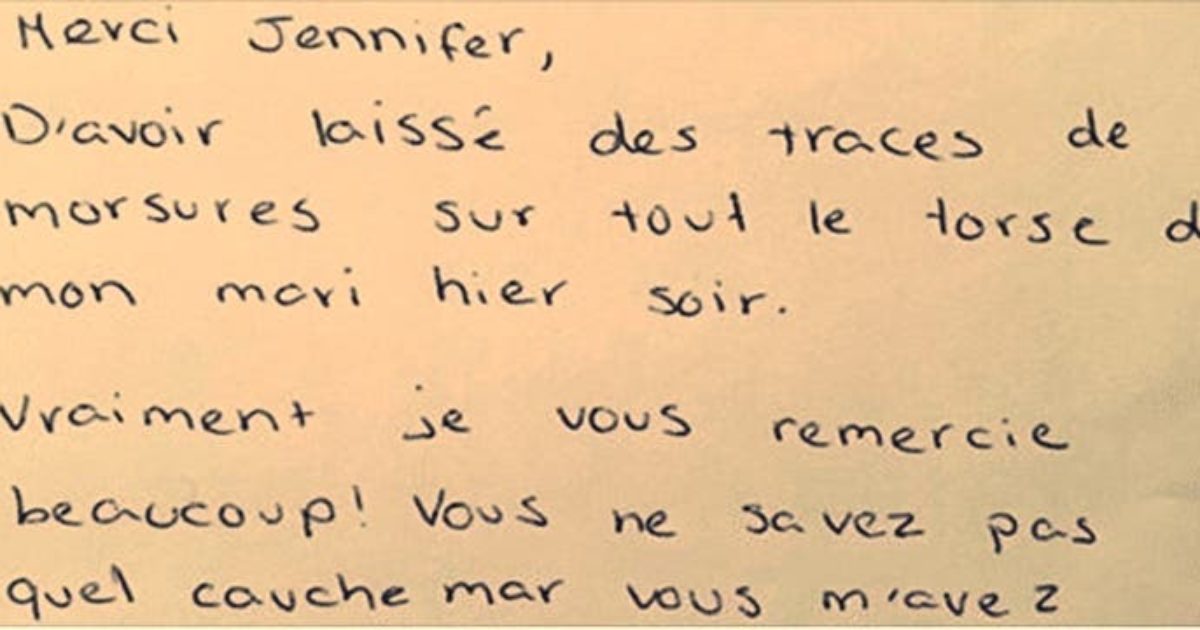 Merci Jennifer,
D'avoir laissé des traces de
morsures sur tout le torse d
mon mari hier soir.
Vraiment je vous remercie
beaucoup! Vous ne savez pas
quel cauchemar vous m'avez